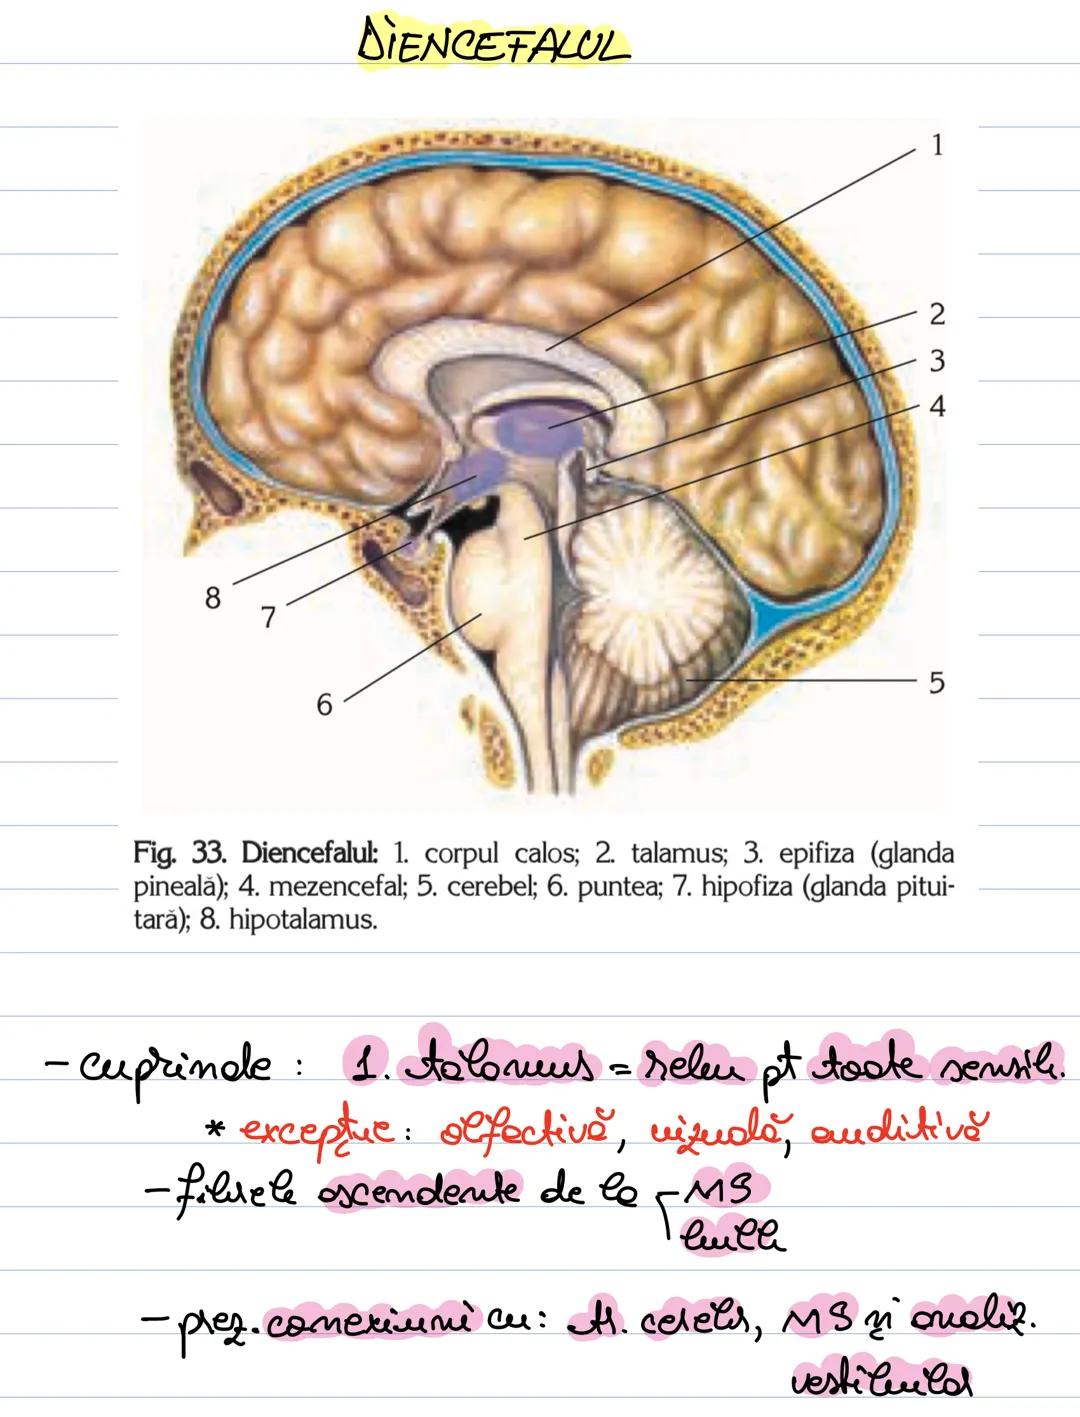 DIENCEFALUL
1
2
3
4
8
7
6
5
Fig. 33. Diencefalul: 1. corpul calos; 2. talamus; 3. epifiza (glanda
pineală); 4. mezencefal; 5. cerebel; 6. puntea; 7. hipofiza (glanda pitui-
tară); 8. hipotalamus.
- cuprinde : 1. talamus = releu pt toate sensib.
* excepție: olfactivă, vizuală, auditivă
- fibrele ascendente de la - MS
bulb
- prez. conexiuni cu: tr. cerebr, MS și analiz.
vestibular